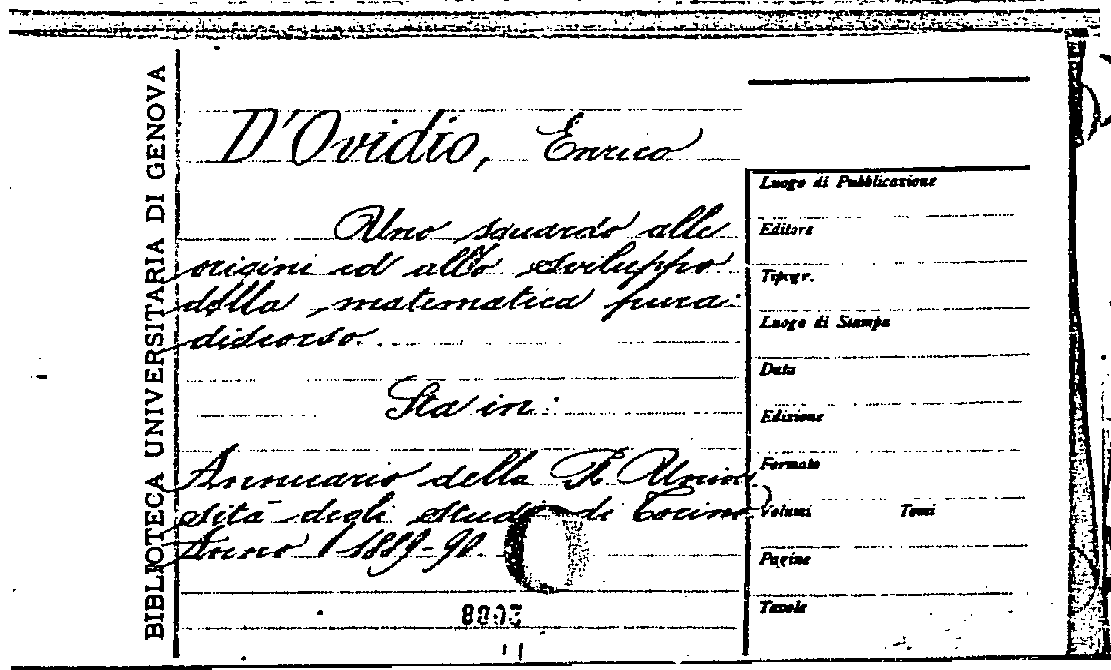 BIBLIOTECA UNIVERSITARIA DI GENOVA
D'Ovidio, Enrico
Uno sguardo alle
origini ed allo sviluppo
della matematica pura:
discorso.
Sta in:
Annuario della R. Univer
sità degli studi di Torino
Anno 1889-90.
Luogo di Pubblicazione
Editore
Tipogr.
Luogo di Stampa
Data
Edizione
Formato
Volumi Tomi
Pagine
Tavole